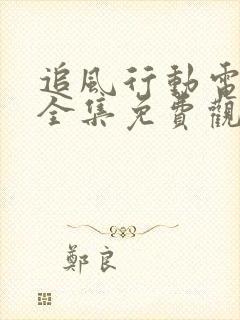 追風行動電
全集免費觀
鄭良